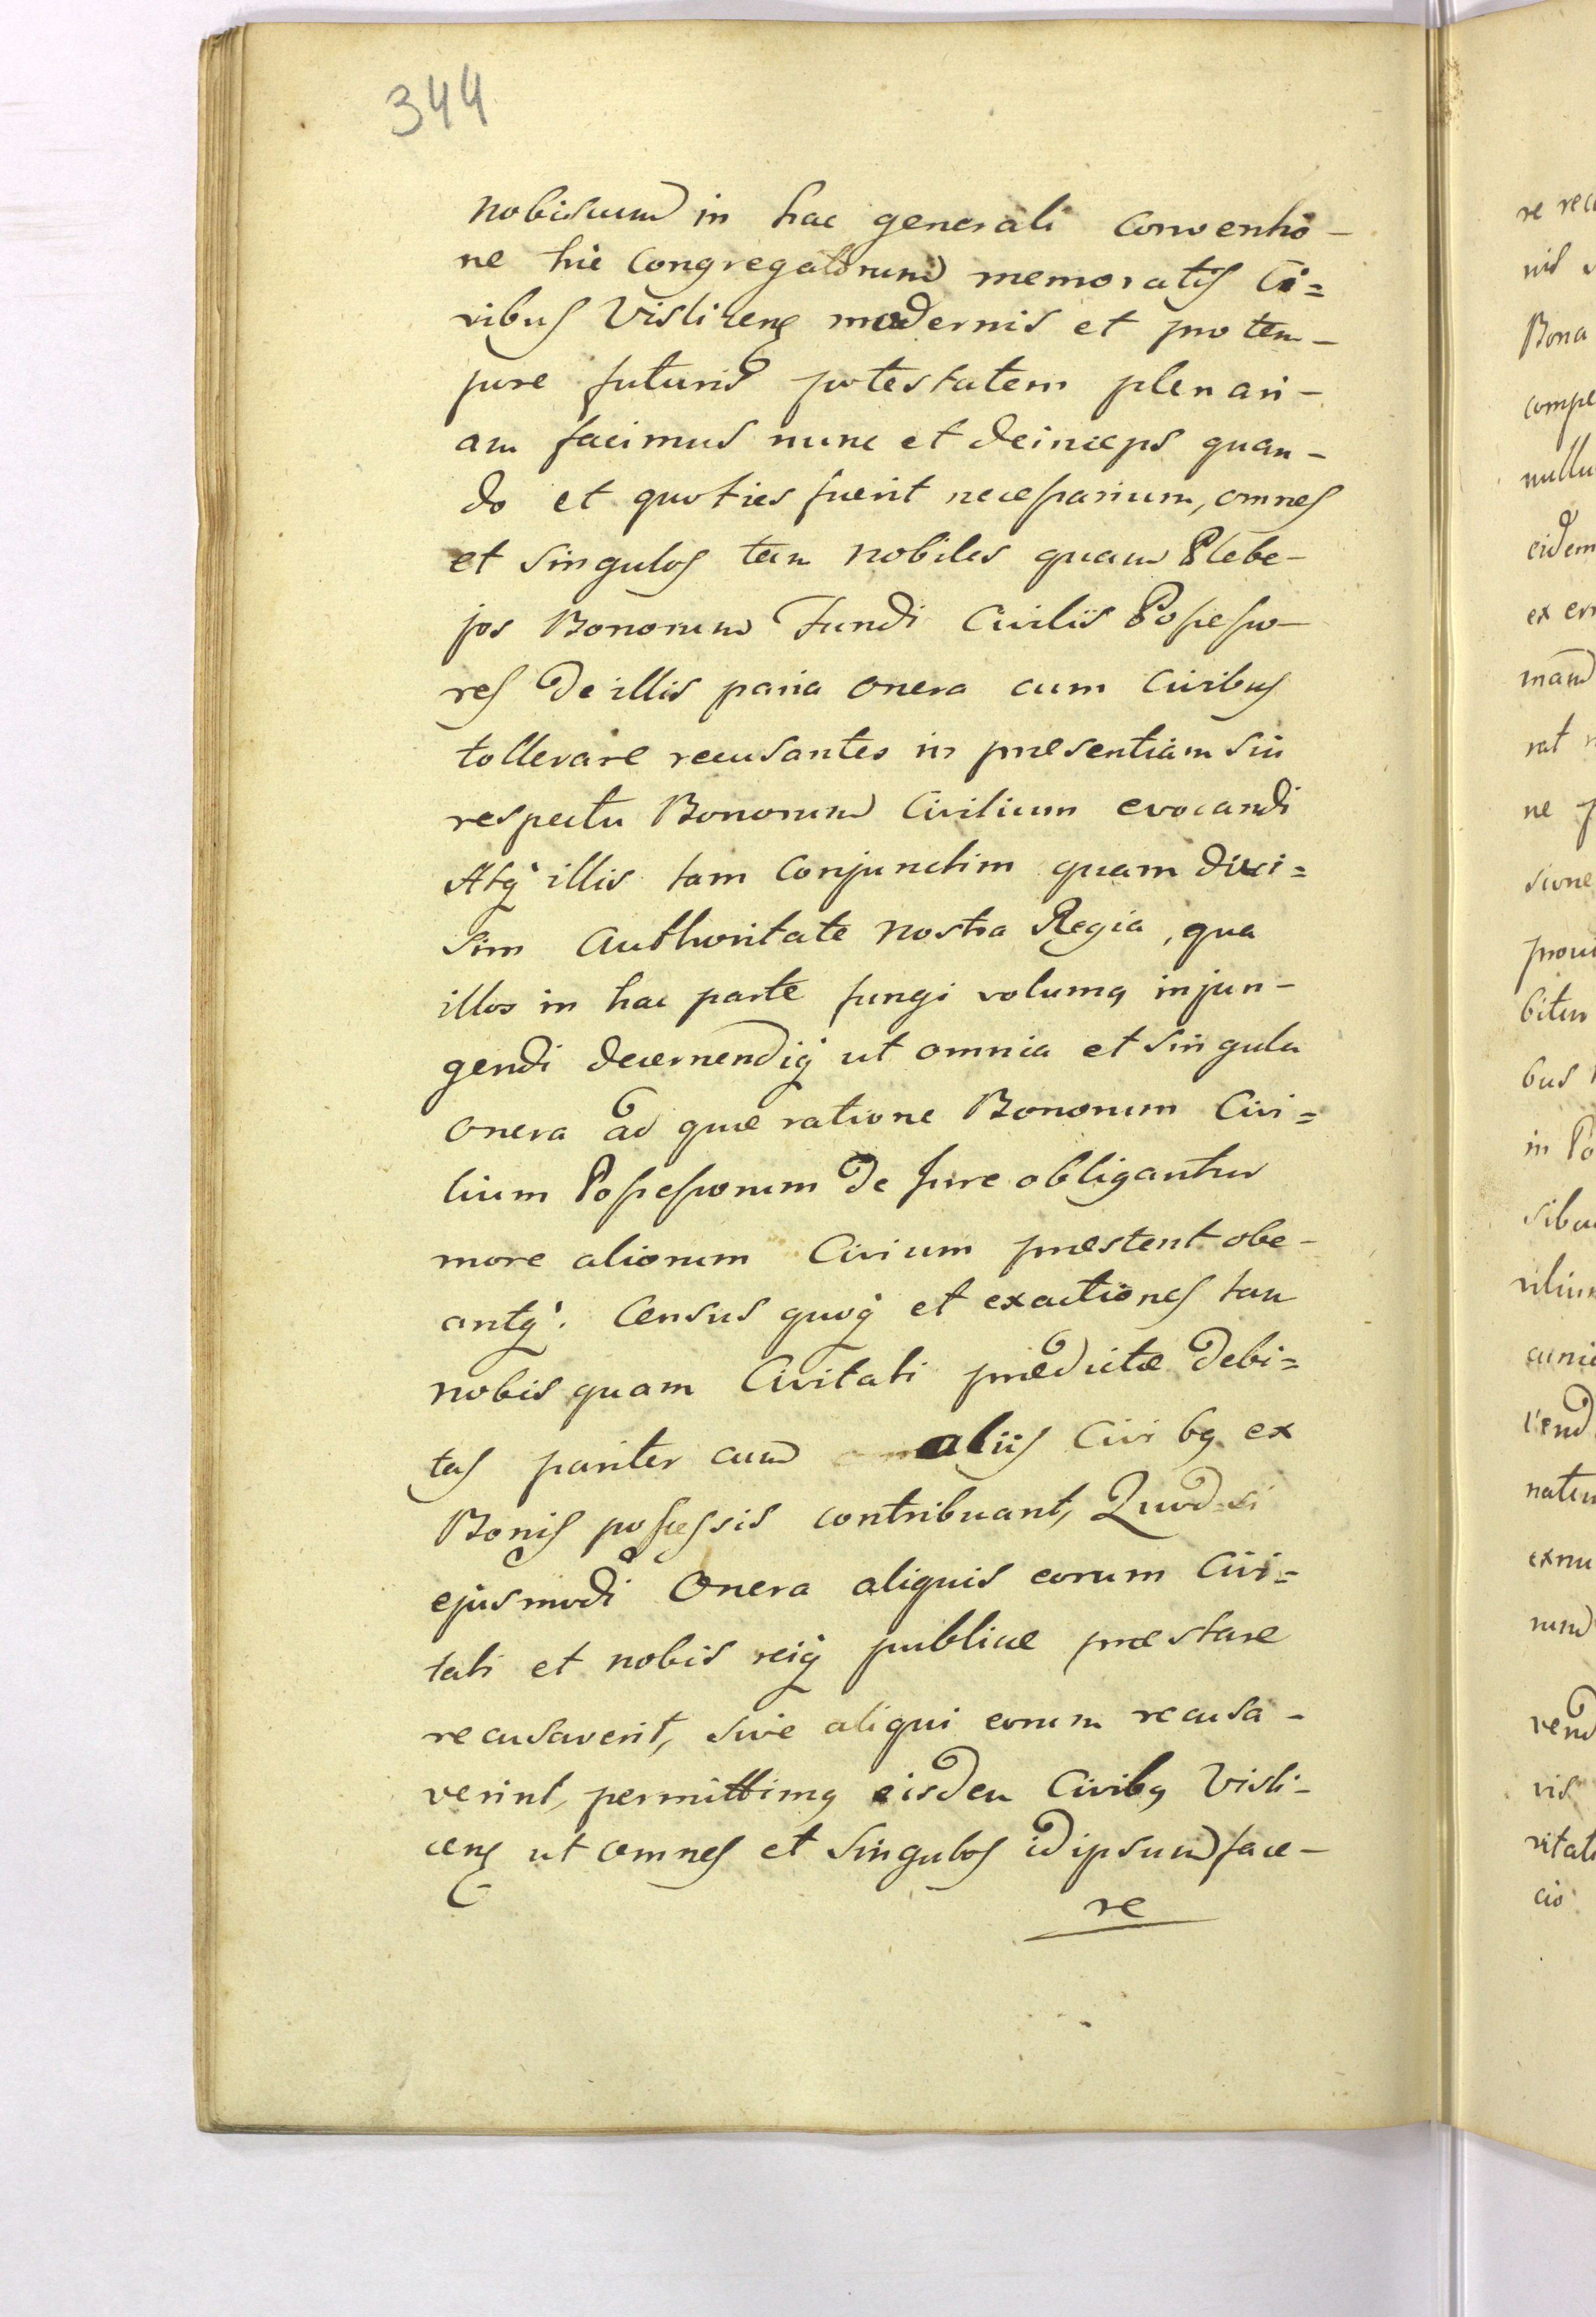 344
nobiscum in hac generali conventio-
ne hic Congregatorum memoratis Ci=
vibus Vislicens modernis et pro tem-
pore futuris potestatem plenari-
am facimus nunc et deinceps quan-
do et quoties fuerit necessarium, omnes
et singulos tam nobiles quam Plebe-
jos Bonorum Fundi Civiliis Possesso-
res de illis paria onera cum Civibus
tollerare recusantes in præsentiam sui
respectu Bonorum Civilium evocandi
Atq illis tam Conjunctim quam divi=
sim Authoritate nostra Regia, qua
illos in hac parte fungi volumq injun-
gendi decernendiq ut omnia et singula
onera ad quæ ratione Bonorum Civi=
lium Possessorum de Jure obligantur
more aliorum Civium præstent obe-
antq. Census quoq et exactiones tam
nobis quam Civitati prædictæ debi=
tas pariter cum aliis Civibq ex
Bonis possessis contribuant, Quod si
ejusmodi Onera aliquis eorum Civi=
tati et nobis reiq publicæ præstare
recusaverit, sive aliqui eorum recusa-
verint, permittimq eisdem Civibq Visli-
cens ut omnes et singulos id ipsum face-
re
re rec
nis
Bona
compe
nullu
eidem
ex
mand
rat
ne p
sione
prou
bitur
bus
in Po
sibu
vilium
cunic
vend
natur
exnu
rum
vend
vis
vitat
cio